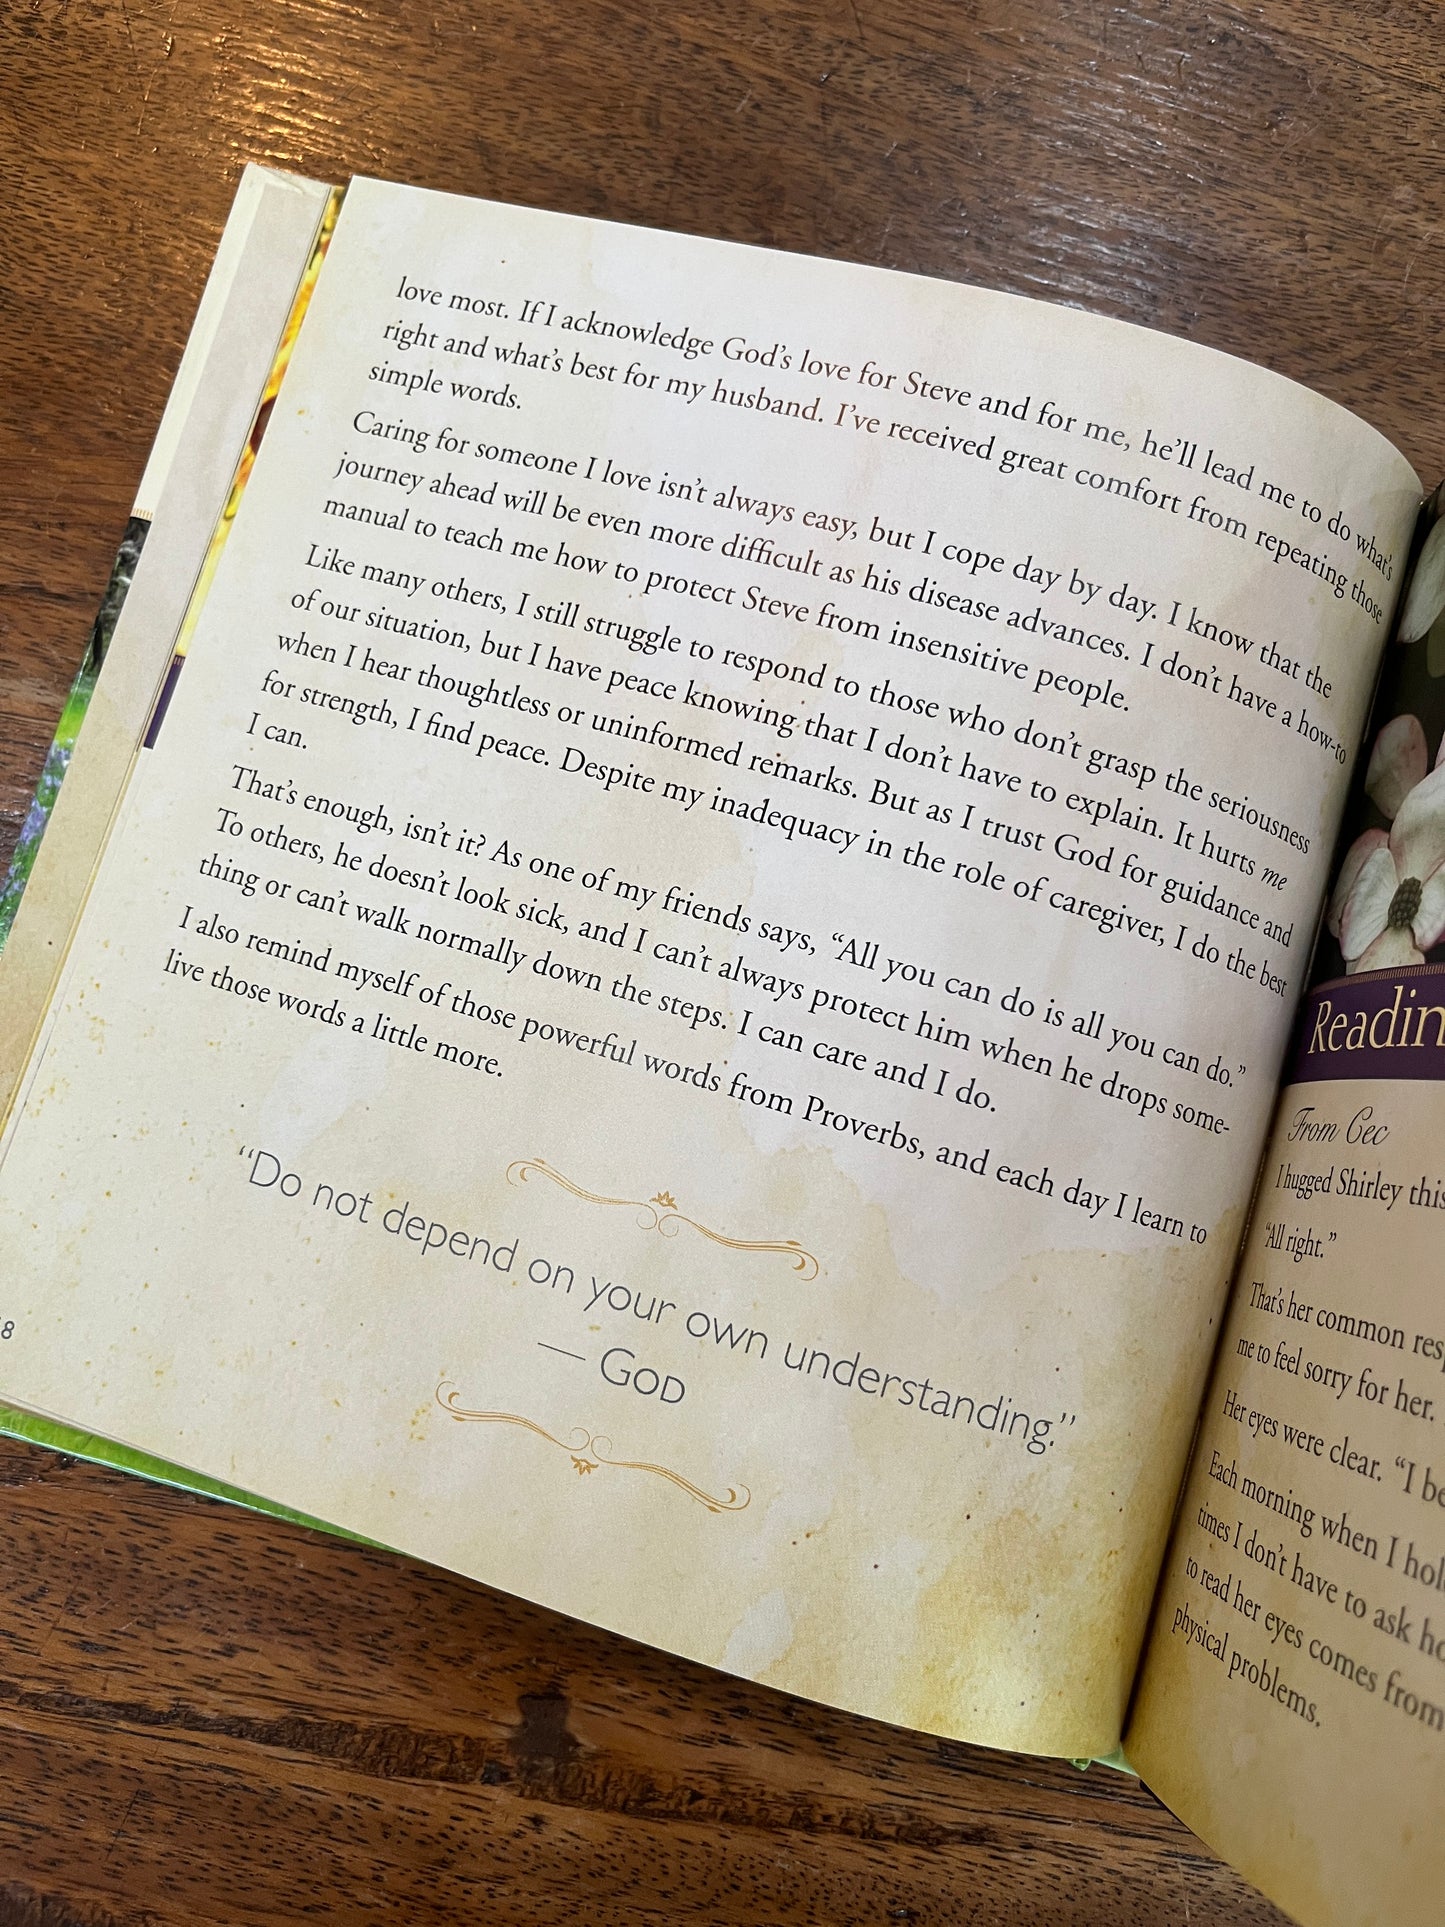 love most. If I acknowledge God's love for Steve and for me, he'll lead me to do what's
right and what's best for my husband. I've received great comfort from repeating those
simple words.
Caring for someone I love isn't always easy, but I cope day by day. I know that the
journey ahead will be even more difficult as his disease advances. I don't have a how-to
manual to teach me how to protect Steve from insensitive people.
Like many others, I still struggle to respond to those who don't grasp the seriousness
of our situation, but I have peace knowing that I don't have to explain. It hurts me
when I hear thoughtless or uninformed remarks. But as I trust God for guidance and
for strength, I find peace. Despite my inadequacy in the role of caregiver, I do the best
I can.
That's enough, isn't it? As one of my friends says, "All you can do is all you can do."
To others, he doesn't look sick, and I can't always protect him when he drops some-
thing or can't walk normally down the steps. I can care and I do.
I also remind myself of those powerful words from Proverbs, and each day I learn to
live those words a little more.
"Do not depend on your own understanding."
— God
8
Readin
From Cec
I hugged Shirley this
"All right."
That's her common res
me to feel sorry for her.
Her eyes were clear. "I be
Each morning when I hol
times I don't have to ask ho
to read her eyes comes from
physical problems.